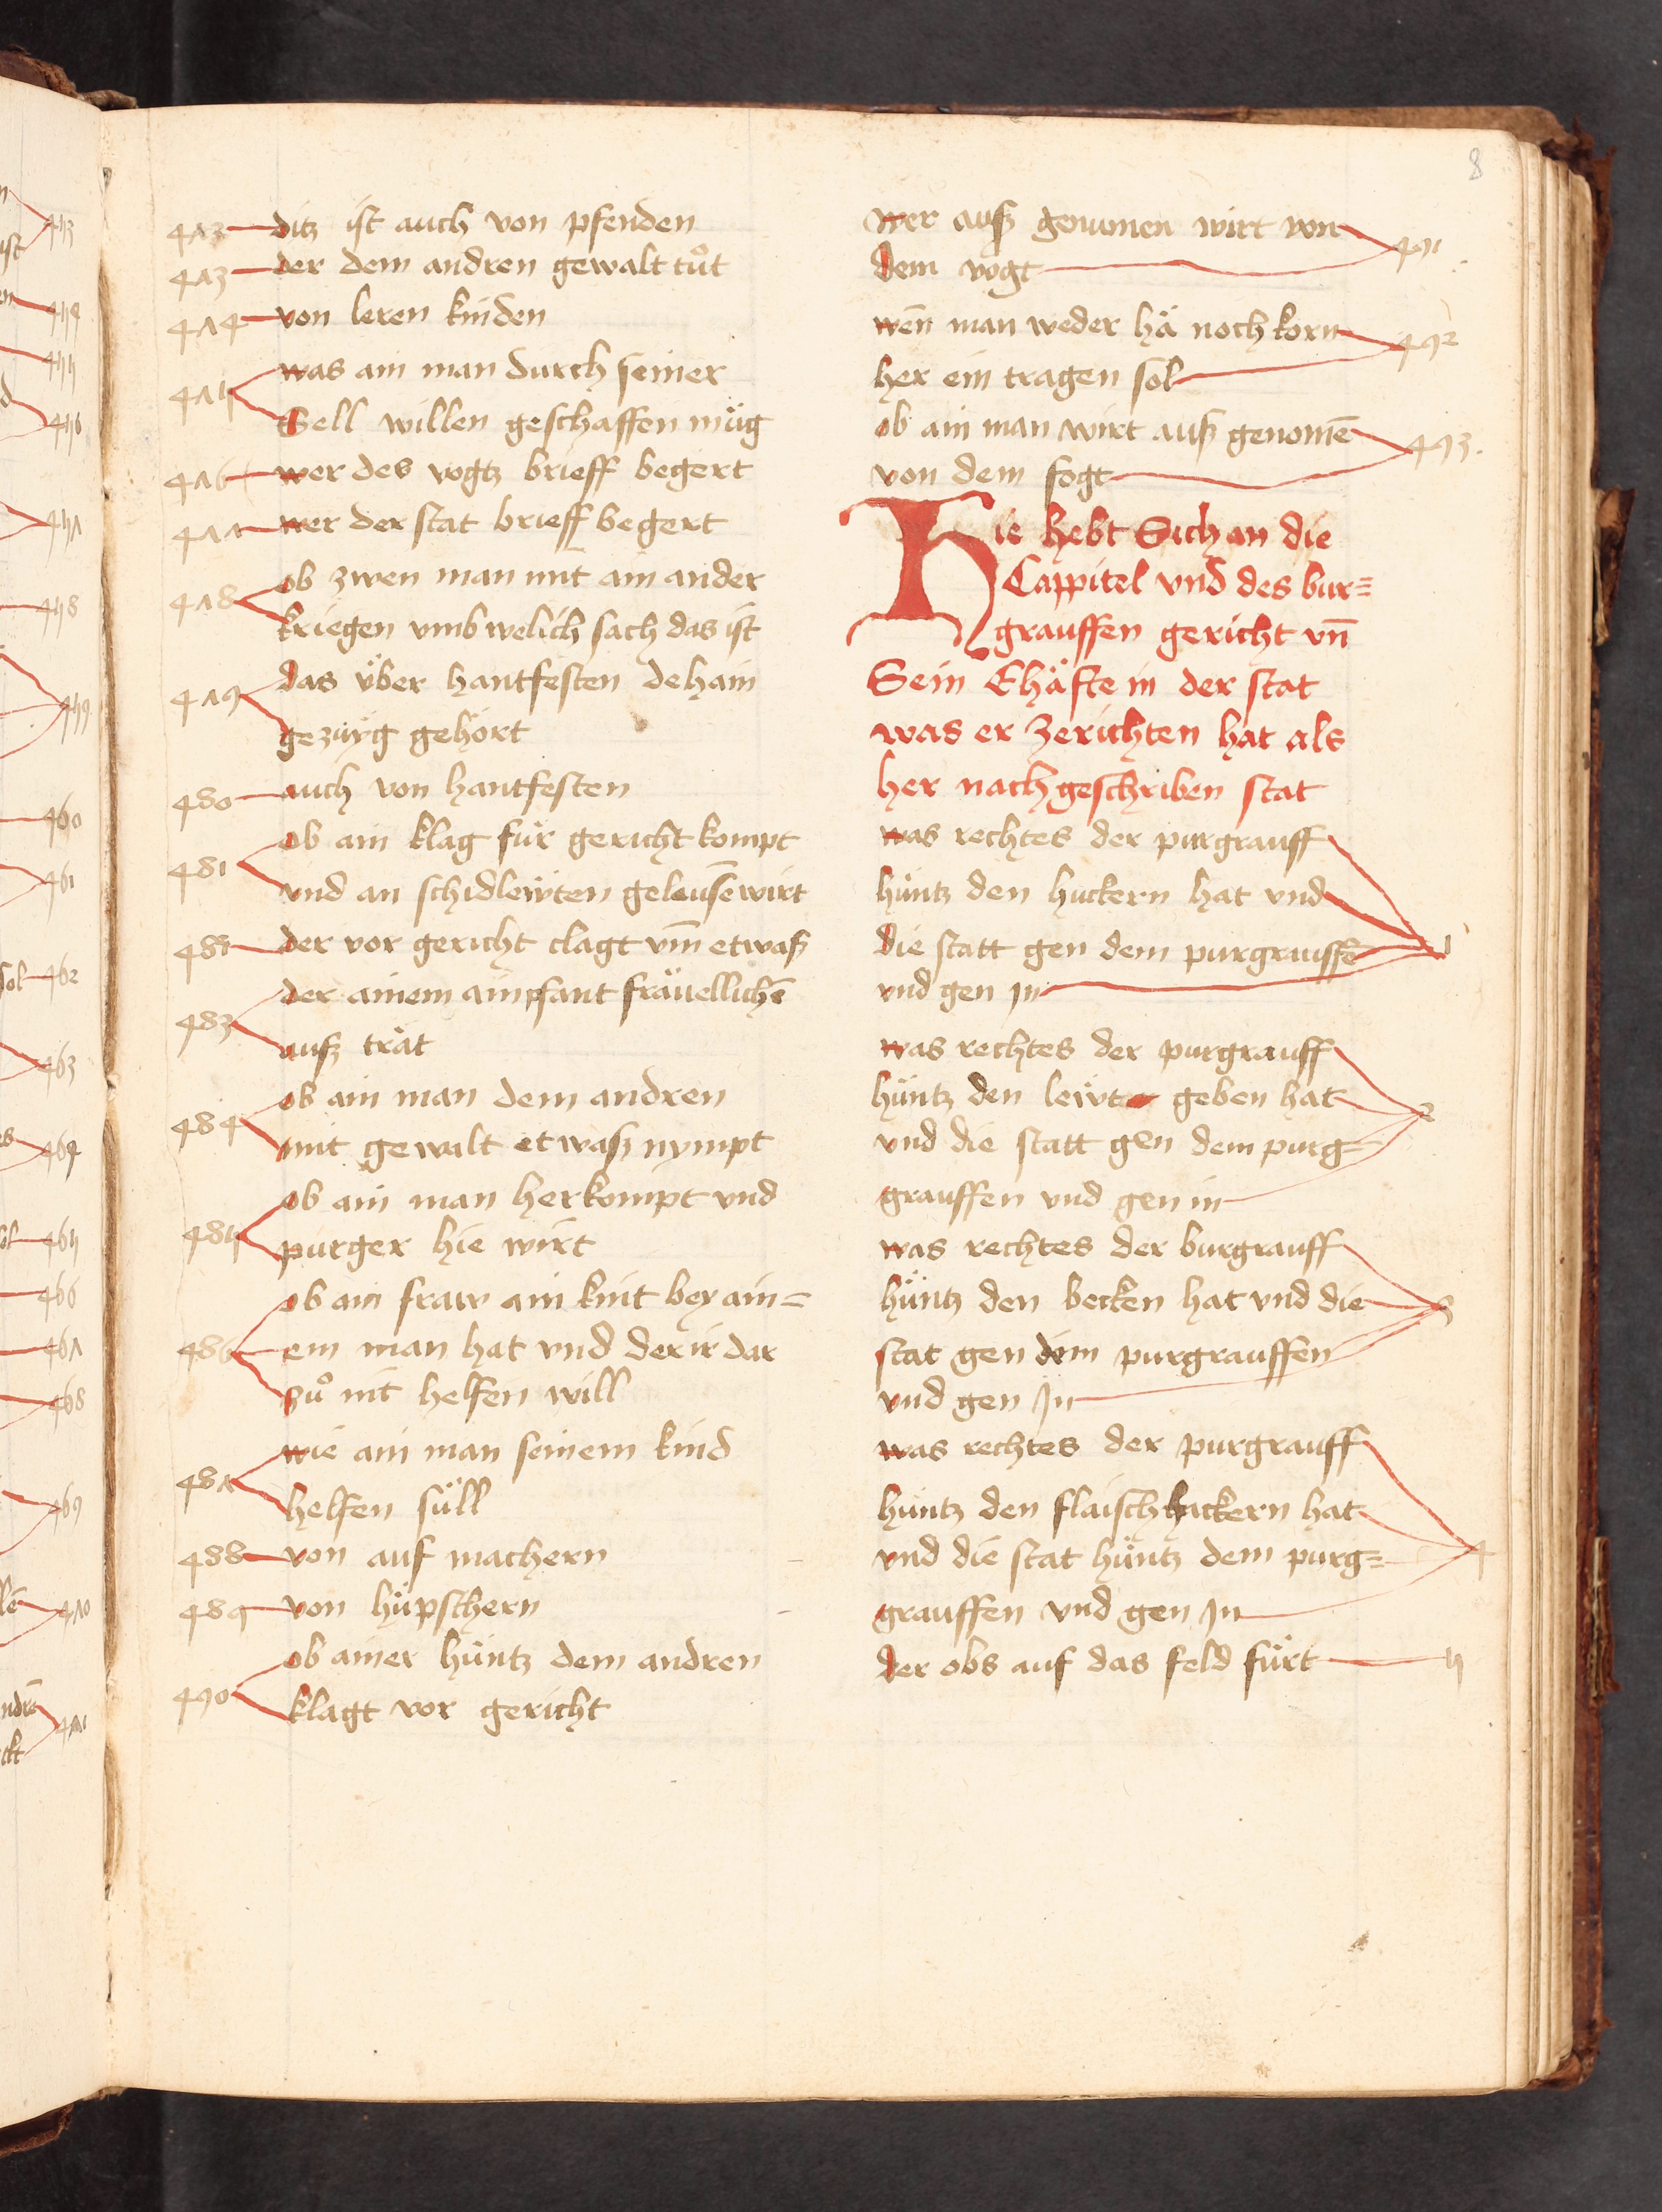 8
472 ditz ist auch von pfenden
473 der dem andren gewalt tuͦt
474 von leren kinden
475 was ain man durch seiner
Sell willen geschaffen müg
476 wer des vogtz brieff begert
477 wer der stat brieff begert
478 ob zwen man mit ain ander
kriegen vmb welich sach das ist
479 das über hantfesten dehain
gezüyg gehört
480 auch von hantfesten
481 ob ain klag für gericht kompt
vnd an schidlewten gelausen̄ wirt
482 der vor gericht clagt vm̄ etwaß
483 der ainem ain pfant fräuellichē
auß trät
484 ob ain man dem andren
mit gewalt etwaß nympt
485 ob ain man her kompt vnd
purger hie wirt
486 ob ain fraw ain kint bey ain=
em man hat vnd der ir dar
zuͦ nit helfen will
487 wie ain man seinem kind
helfen süll
488 von auf machern
489 von hüpschern
490 ob ainer hüntz dem andren
klagt vor gericht
wer auß genumen wirt von
dem vogt 491
wen̄ man weder hä noch korn
her ein tragen sol 492
ob ain man wirt auß genomē
von dem fogt 493.
Hie hebt Sich an die
Cappitel vnd des bur=
grauffen gericht vn̄
Sein Ehäfte in der stat
was er zerichten hat als
her nach geschriben stat
was rechtes der purgrauff
hüntz den huckern hat vnd
die statt gen dem purgrauffē
vnd gen In 1
was rechtes der purgrauff
hüntz den lewt geben hat
vnd die statt gen dem purg=
grauffen vnd gen in 2
was rechtes der burgrauff
hüntz den becken hat vnd die
stat gen dem purgrauffen
vnd gen In 3
was rechtes der purgrauff
huntz den flaischhackern hat
vnd die stat hüntz dem purg=
grauffen vnd gen In 4
der obs auf das feld fürt 5